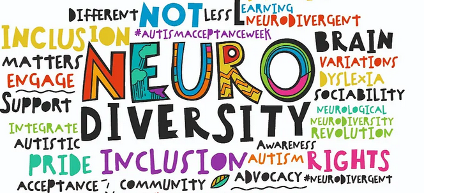 DIFFERENT NOT LESS LEARNING
NEURODIVERGENT
INCLUSION #AUTISMACCEPTANCEWEEK BRAIN
MATTERS VARIATIONS
ENGAGE NEURO DYSLEXIA
SUPPORT SOCIABILITY
DIVERSITY NEUROLOGICAL
INTEGRATE NEURODIVERSITY
AUTISTIC REVOLUTION
AWARENESS
PRIDE INCLUSION AUTISM RIGHTS
ACCEPTANCE COMMUNITY ADVOCACY #NEURODIVERGENT